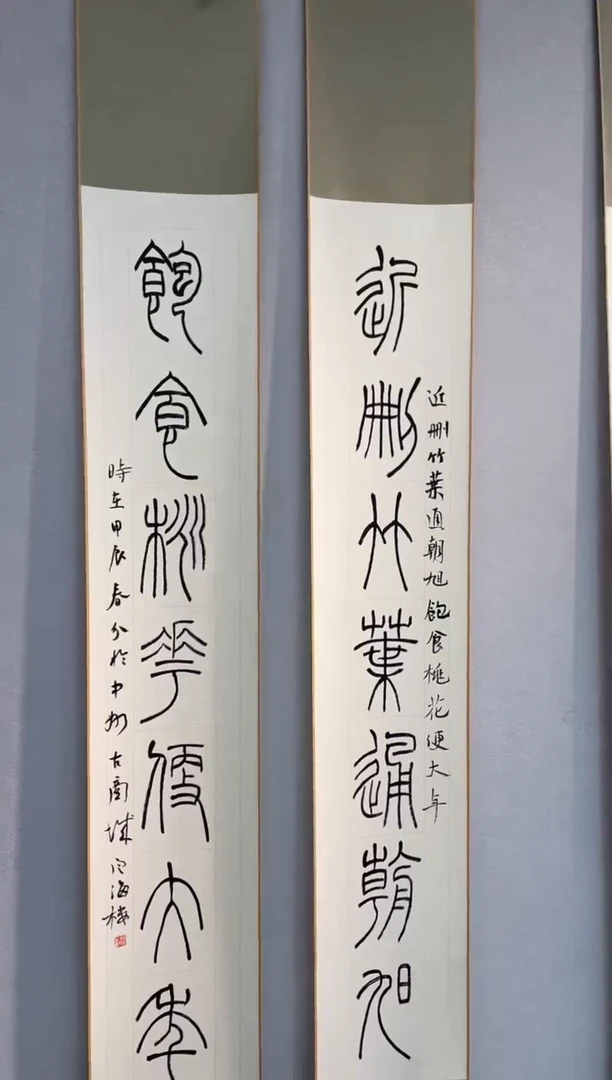 近删竹葉通朝旭
近删竹葉通朝旭飽食桃花便大年
飽食桃華便大年
時在甲辰春分於中州古商城海楼